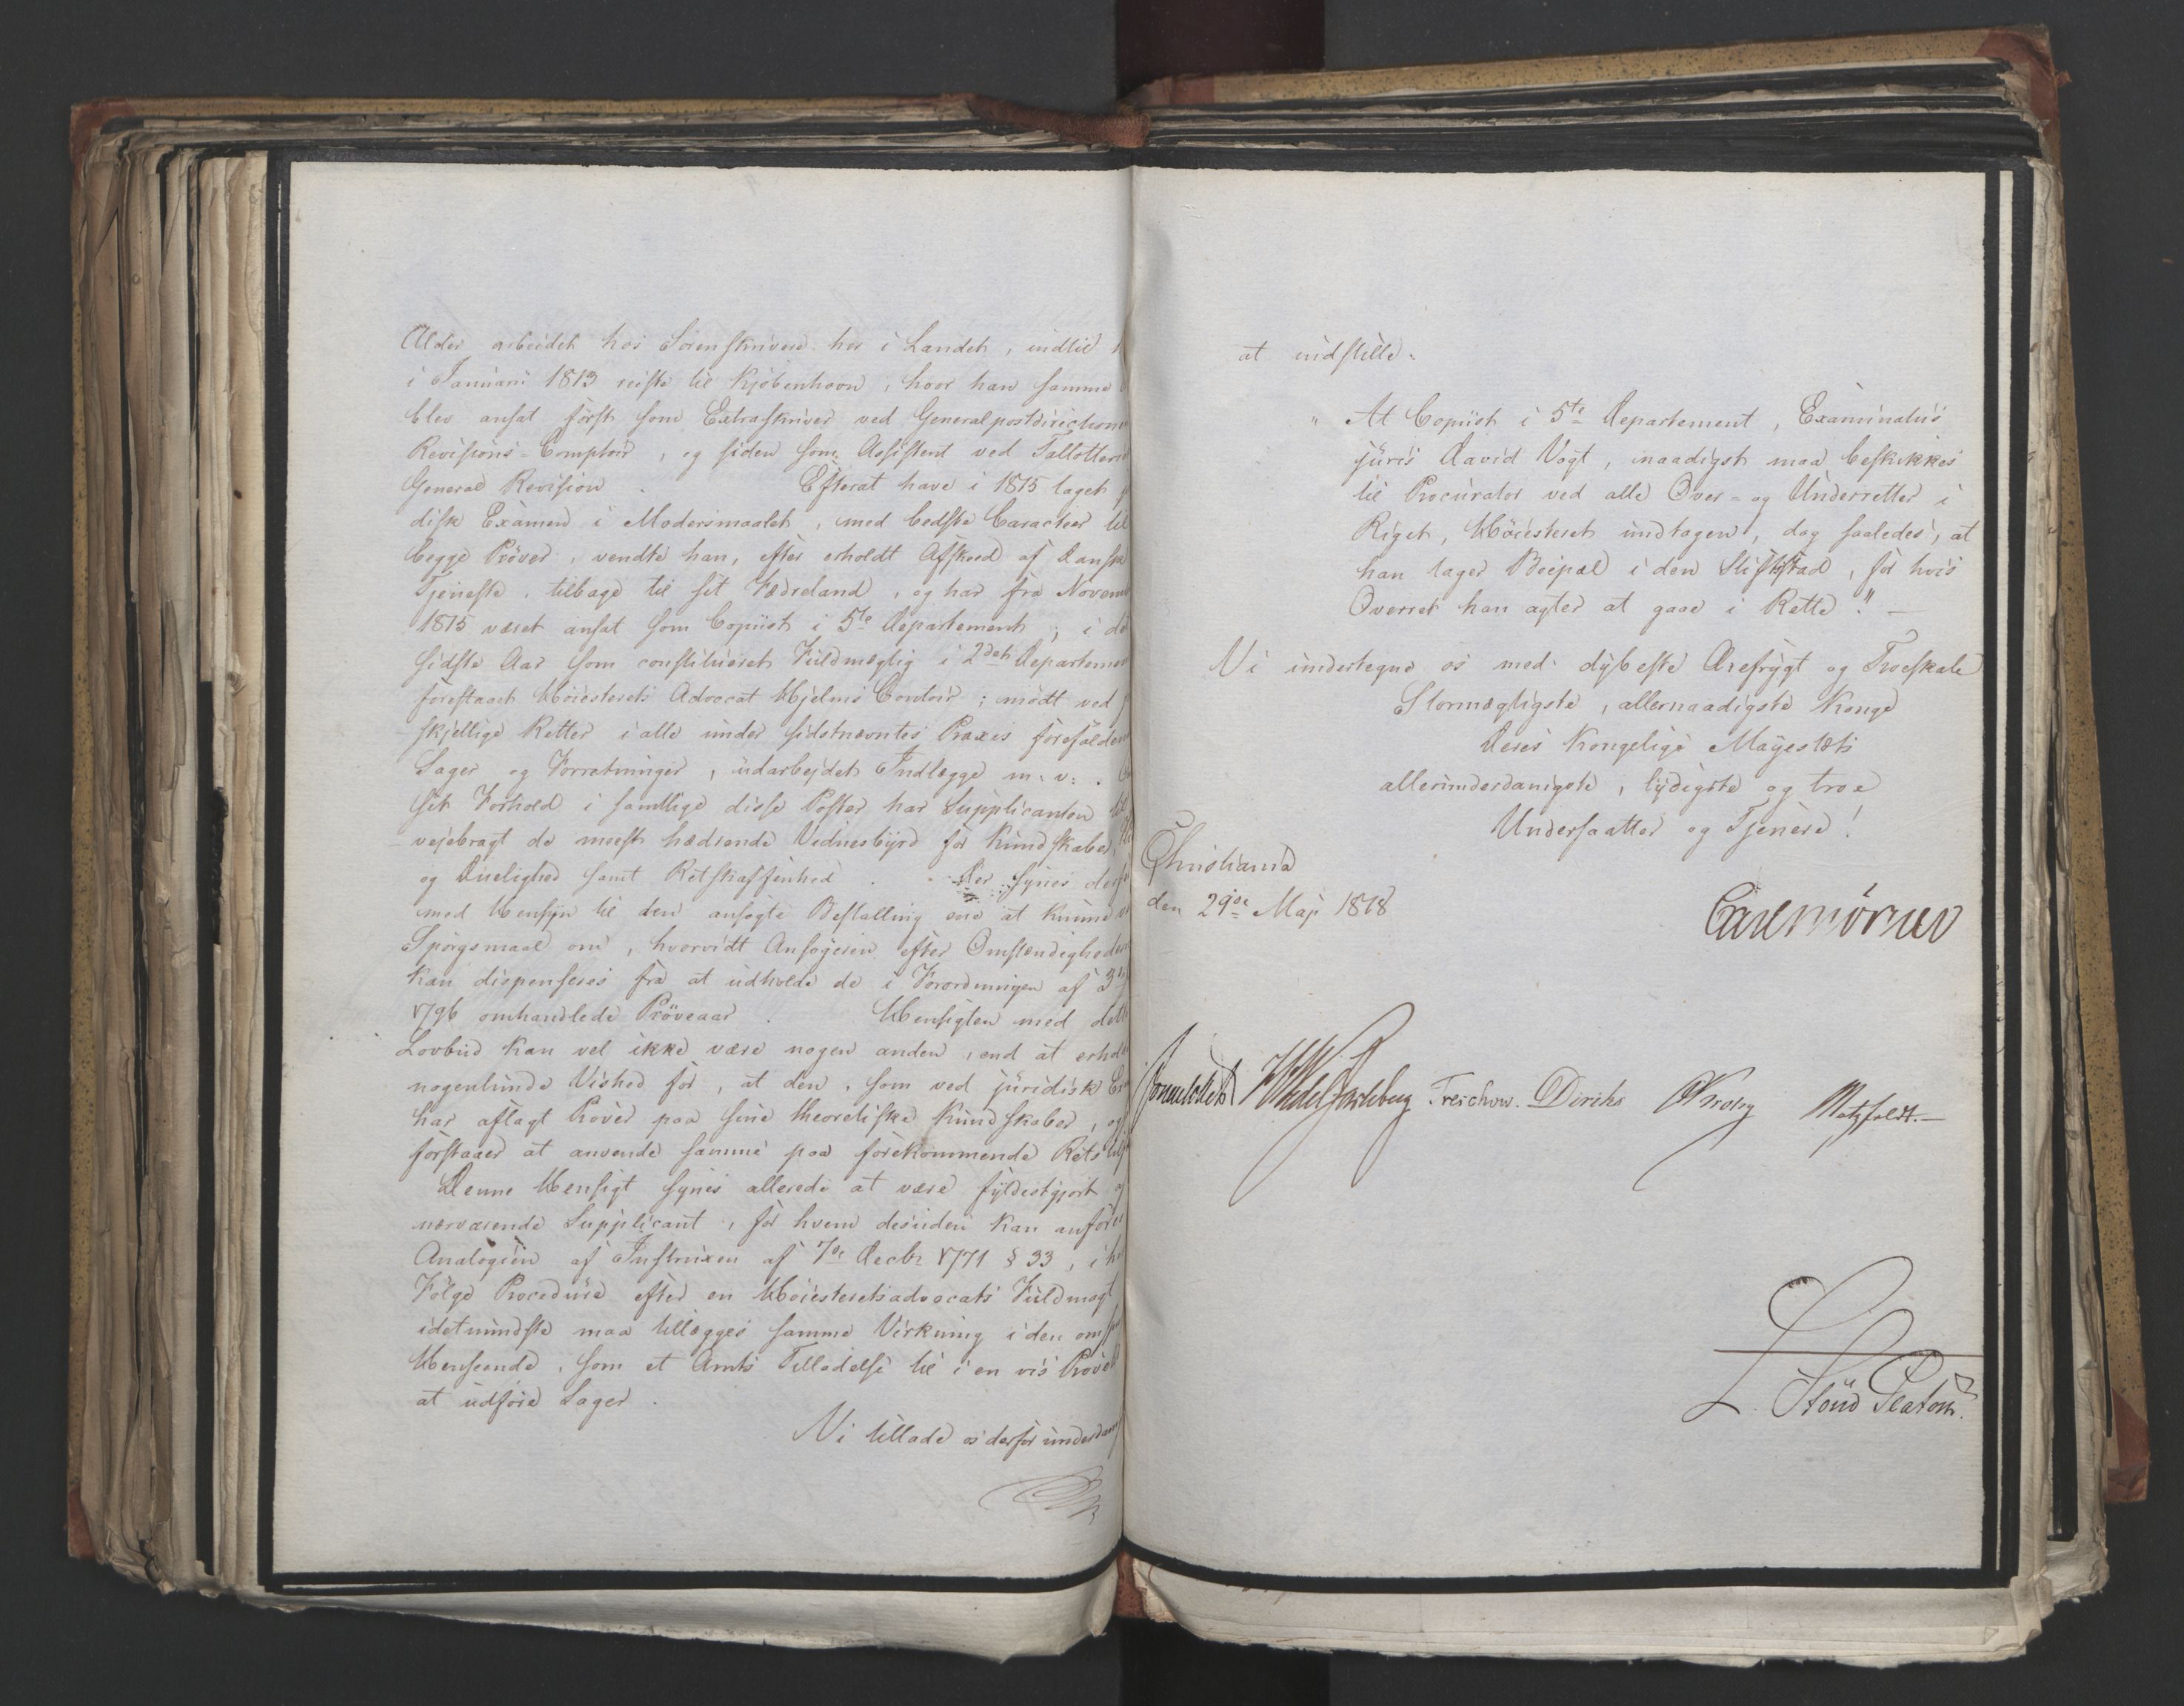 Alder arbeidet hos Sorenskrivere her i Landet, indtil
i Januari 1813 reiste til Kjøbenhavn, hvor han samme
blev ansat først som Extraskriver ved Generalpostdirections
Revisions-Comptoir, og siden som Assistent ved Tallotteri
General Revision. Efterat have i 1815 taget
disk Examen i Modersmaalet, med bedste Caracteer til
begge Prøver, vendte han, efter erholdt Afskeed af Dansk
Tjeneste, tilbage til sit Fædreland, og har fra Novem
1815 været ansat som Copiist i 5te Departement; i de
sidste Aar som constitueret Fuldmægtig i 2det Departemen
forestaaet Høiesterets Advocat Hjelms Contoir; mødt ved
skjellige Retter i alle under sidstnævntes Praxis forefalden
Sager og Forretninger, udarbejdet Indlægge m: v: .
sit Forhold i samtlige disse Poster har Supplicanten
vejebragt de meest hædrende Vidnesbyrd for Kundskaber
og Duelighed samt Retskaffenhed. Der synes der
med Hensyn til den ansøgte Bestalling ene at kunne
Spørgsmaal om, hvorvidt Ansøgeren efter Omstændighede
kan dispenseres fra at udholde de i Forordningen af 3
1796 omhandlede Prøveaar. Hensigten med dette
Lovbud kan vel ikke være nogen anden, end at erhol
nogenlunde Vished for, at den, som ved juridisk Ex
har aflagt Prøver paa sine theoretiske Kundskaber, og
forstaaer at anvende samme paa forekommende Rets
Denne Hensigt synes allerede at være fyldestgjort
nærværende Supplicant, for hvem desuden kan anføres
Analogien af Instruxen af 7de Decbr 1771 § 33, i
Følge Procedure efter en Høiesteretsadvocats Fuldmagt
idetmindste maa tillægges samme Virkning i den om
Henseende, som et Amts Tilladelse til i en vis
at udføre Sager.
Vi tillade os derfor underdan
at indstille:
"At Copiist i 5te Departement, Examinatus
juris David Vogt, naadigst maa beskikkes
til Procurator ved alle Over- og Underretter i
Riget, Høiesteret undtagen, dog saaledes, at
han tager Boepæl i den Stiftstad, for hvis
Overret han agter at gaae i Rette." —
Vi undertegne os med dybeste Ærefrygt og Troeskab
Stormægtigste, allernaadigste Konge
Deres Kongelige Mayestæts
allerunderdanigste, lydigste og troe
Undersaatter og Tjenere!
Christiania
den 29de Maji 1818
Carl Mörner
Sommerhielm HWedel Jarlsberg Treschow. Diriks CKrohg Motzfeldt.
L. Stoud Platou